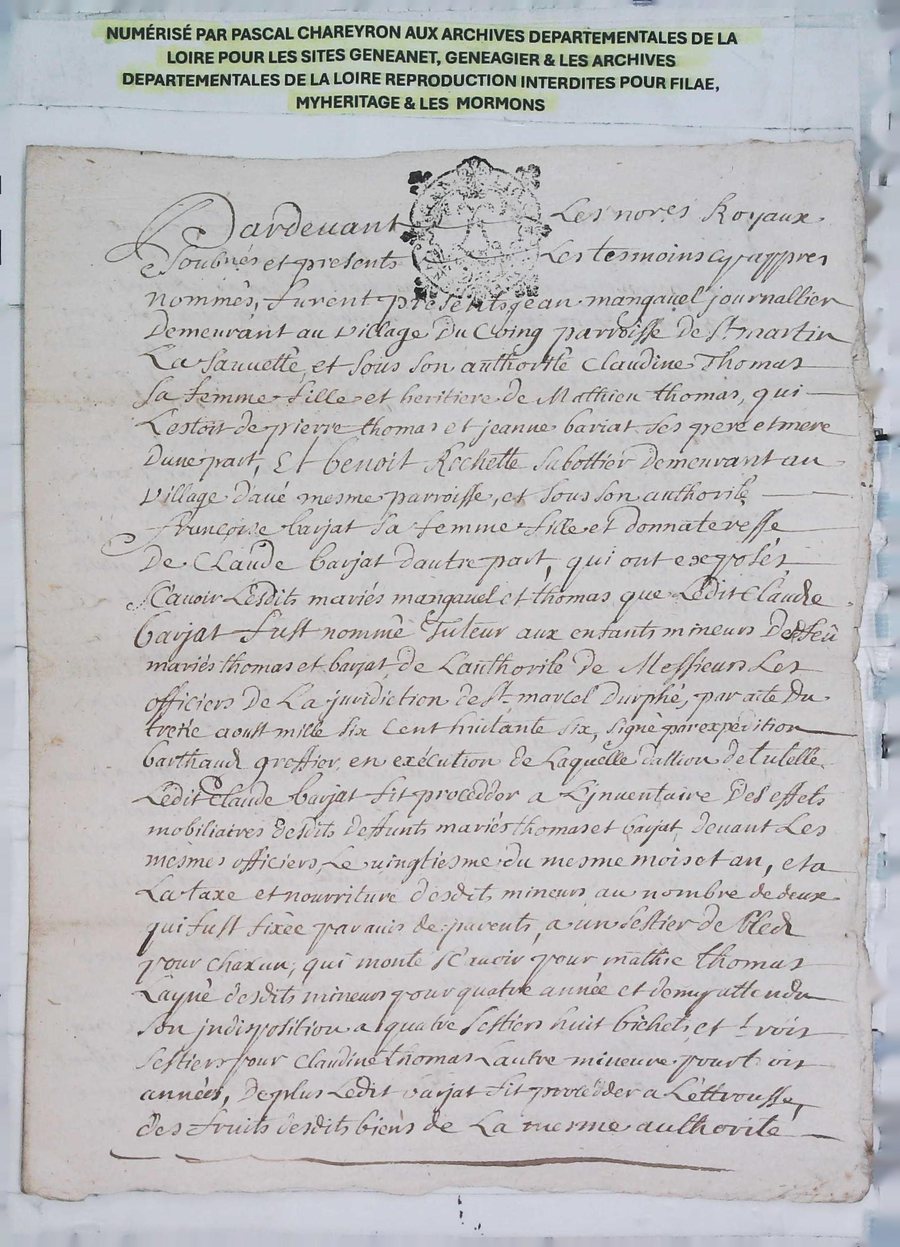 NUMÉRISÉ PAR PASCAL CHAREYRON AUX ARCHIVES DEPARTEMENTALES DE LA
LOIRE POUR LES SITES GENEANET, GENEAGIER & LES ARCHIVES
DEPARTEMENTALES DE LA LOIRE REPRODUCTION INTERDITES POUR FILAE,
MYHERITAGE & LES MORMONS
Pardevant Les nores Royaux
Soubnés et presents Les tesmoins cy appres
nommés, furent presents jean mangavel journallier
Demeurant au village Du Coing parroisse de St. martin
La Sauveté, et sous son authorité Claudine Thomas
Sa femme fille et heritiere de Mathieu thomas, qui
L'estoit de pierre thomas et jeanne bariat ses pere et mere
D'une part, Et benoit Rochette Sabottier Demeurant au
village d'avé mesme parroisse, et sous son authorité
francoise barjat sa femme fille et donnateresse
De Claude barjat d'autre part, qui ont exposés
Scavoir Lesdits mariés mangavel et thomas que Ledit Claude
barjat fust nommé Tuteur aux enfants mineurs Desd feu
mariés thomas et barjat de L'authorité de Messieurs Les
officiers De La juridiction de St. marcel Durphé, par acte Du
tretie aoust mille six cent huitante six, signé par expédition
barthaud greffier, en exécution de Laquelle dattion de tutelle
Ledit Claude barjat fit procedder a L'jnventaire Des effets
mobiliaires desdits deffunts mariés thomas et barjat, devant Les
mesmes officiers, Le vingtiesme du mesme mois et an, et a
La taxe et nourriture desdits mineurs, au nombre de deux
qui fust fixée par avis de parents, a un sestier de bled
pour chaxun, qui monte Scavoir pour mathie thomas
Layné desdits mineurs pour quatre année et demy attendu
Son jndisposition a quatre sestiers huit bichets, et trois
sestiers pour Claudine thomas L'autre mineure pour trois
années, De plus Ledit barjat fit procedder a L'ettrousse
des fruits desdits biens de La mesme authorité